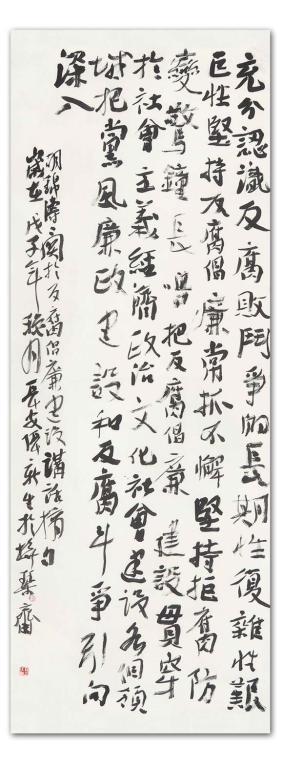 充分認識反腐敗鬥爭的長期性復雜性艱
巨性堅持反腐倡廉常抓不懈堅持拒腐防
變警鐘長鳴把反腐倡廉建設貫穿
於社會主義經濟政治文化社會建設各個領
域把黨風廉政建設和反腐斗爭引向
深入
胡錦濤關於反腐倡廉建設講話摘句
歲在戊子年月長安新生於琴齋